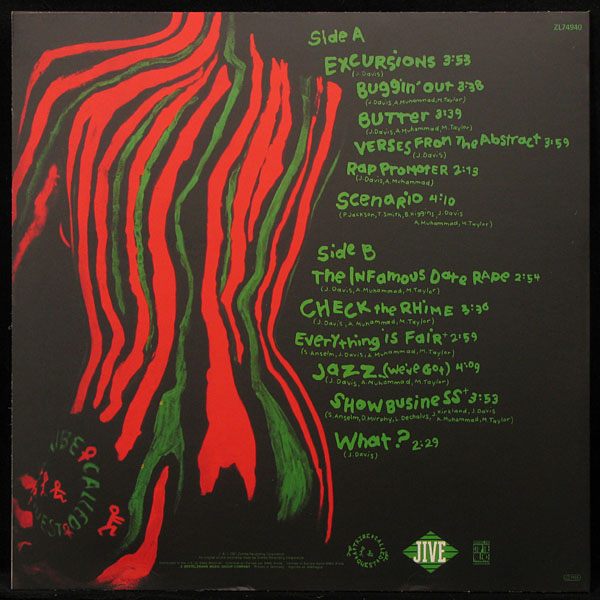 ZL74940
Side A
Excursions 3:53
(J. Davis)
Buggin' Out 3:38
(J. Davis, A. Muhammad, M. Taylor)
Butter 3:39
(J. Davis, A. Muhammad, M. Taylor)
Verses From The Abstract 3:59
(J. Davis)
Rap Promoter 2:13
(J. Davis, A. Muhammad)
Scenario 4:10
(P. Jackson, T. Smith, B. Higgins, J. Davis
A. Muhammad, M. Taylor)
Side B
The Infamous Date Rape 2:54
(J. Davis, A. Muhammad, M. Taylor)
Check the Rhime 3:36
(J. Davis, A. Muhammad, M. Taylor)
Everything is Fair 2:59
(S. Anselm, J. Davis, A. Muhammad, M. Taylor)
Jazz (We've Got) 4:09
(J. Davis, A. Muhammad, M. Taylor)
Show Business+ 3:53
(S. Anselm, D. Murphy, L. Dechalus, J. Kirkland, J. Davis
A. Muhammad, M. Taylor)
What? 2:29
(J. Davis)
TRIBE CALLED
QUEST
A TRIBE CALLED
QUEST
JIVE